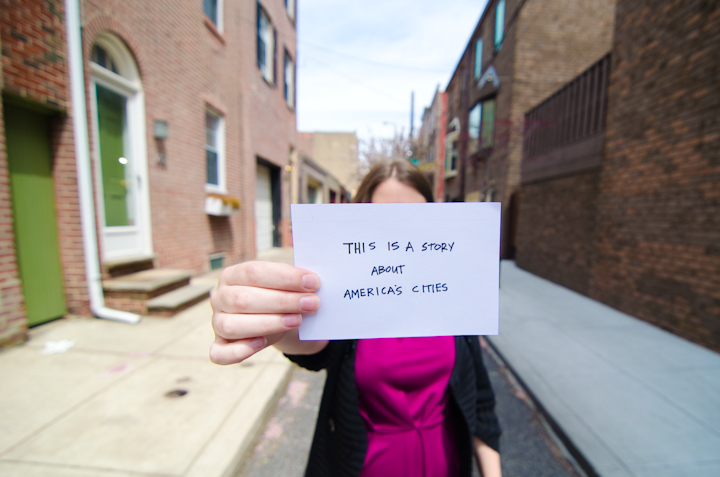 THIS IS A STORY
ABOUT
AMERICA'S CITIES